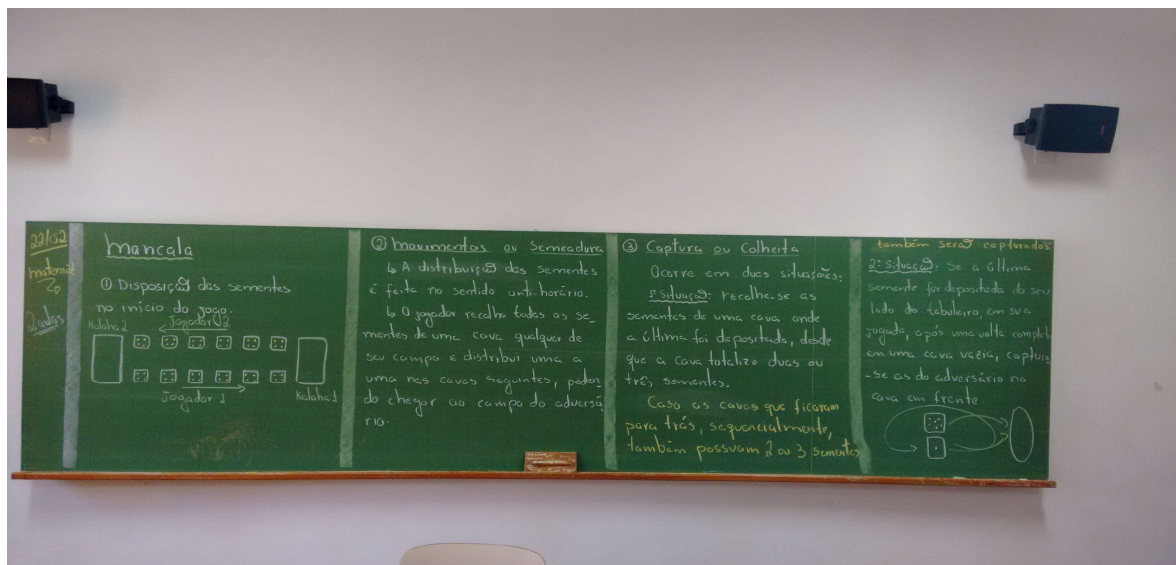 22/02
matemát
2 aulas
Mancala
① Disposição das sementes
no início do jogo.
Kalaha 2
Jogador 2
Jogador 1
Kalaha 1
② Movimentos ou Semeadura
↳ A distribuição das sementes
é feita no sentido anti-horário.
↳ O jogador recolhe todas as se-
mentes de uma cava qualquer de
seu campo e distribui uma a
uma nas cavas seguintes, poden
do chegar ao campo do adversá
rio.
③ Captura ou Colheita
Ocorre em duas situações:
1ª situação: recolhe-se as
sementes de uma cava onde
a última foi depositada, desde
que a cava totalize duas ou
três sementes.
Caso as cavas que ficaram
para trás, sequencialmente,
também possuam 2 ou 3 sementes
também serão capturadas
2ª situação: Se a última
semente for depositada do seu
lado do tabuleiro, em sua
jogada, após uma volta completa
em uma cava vazia, captura
-se as do adversário na
cava em frente.